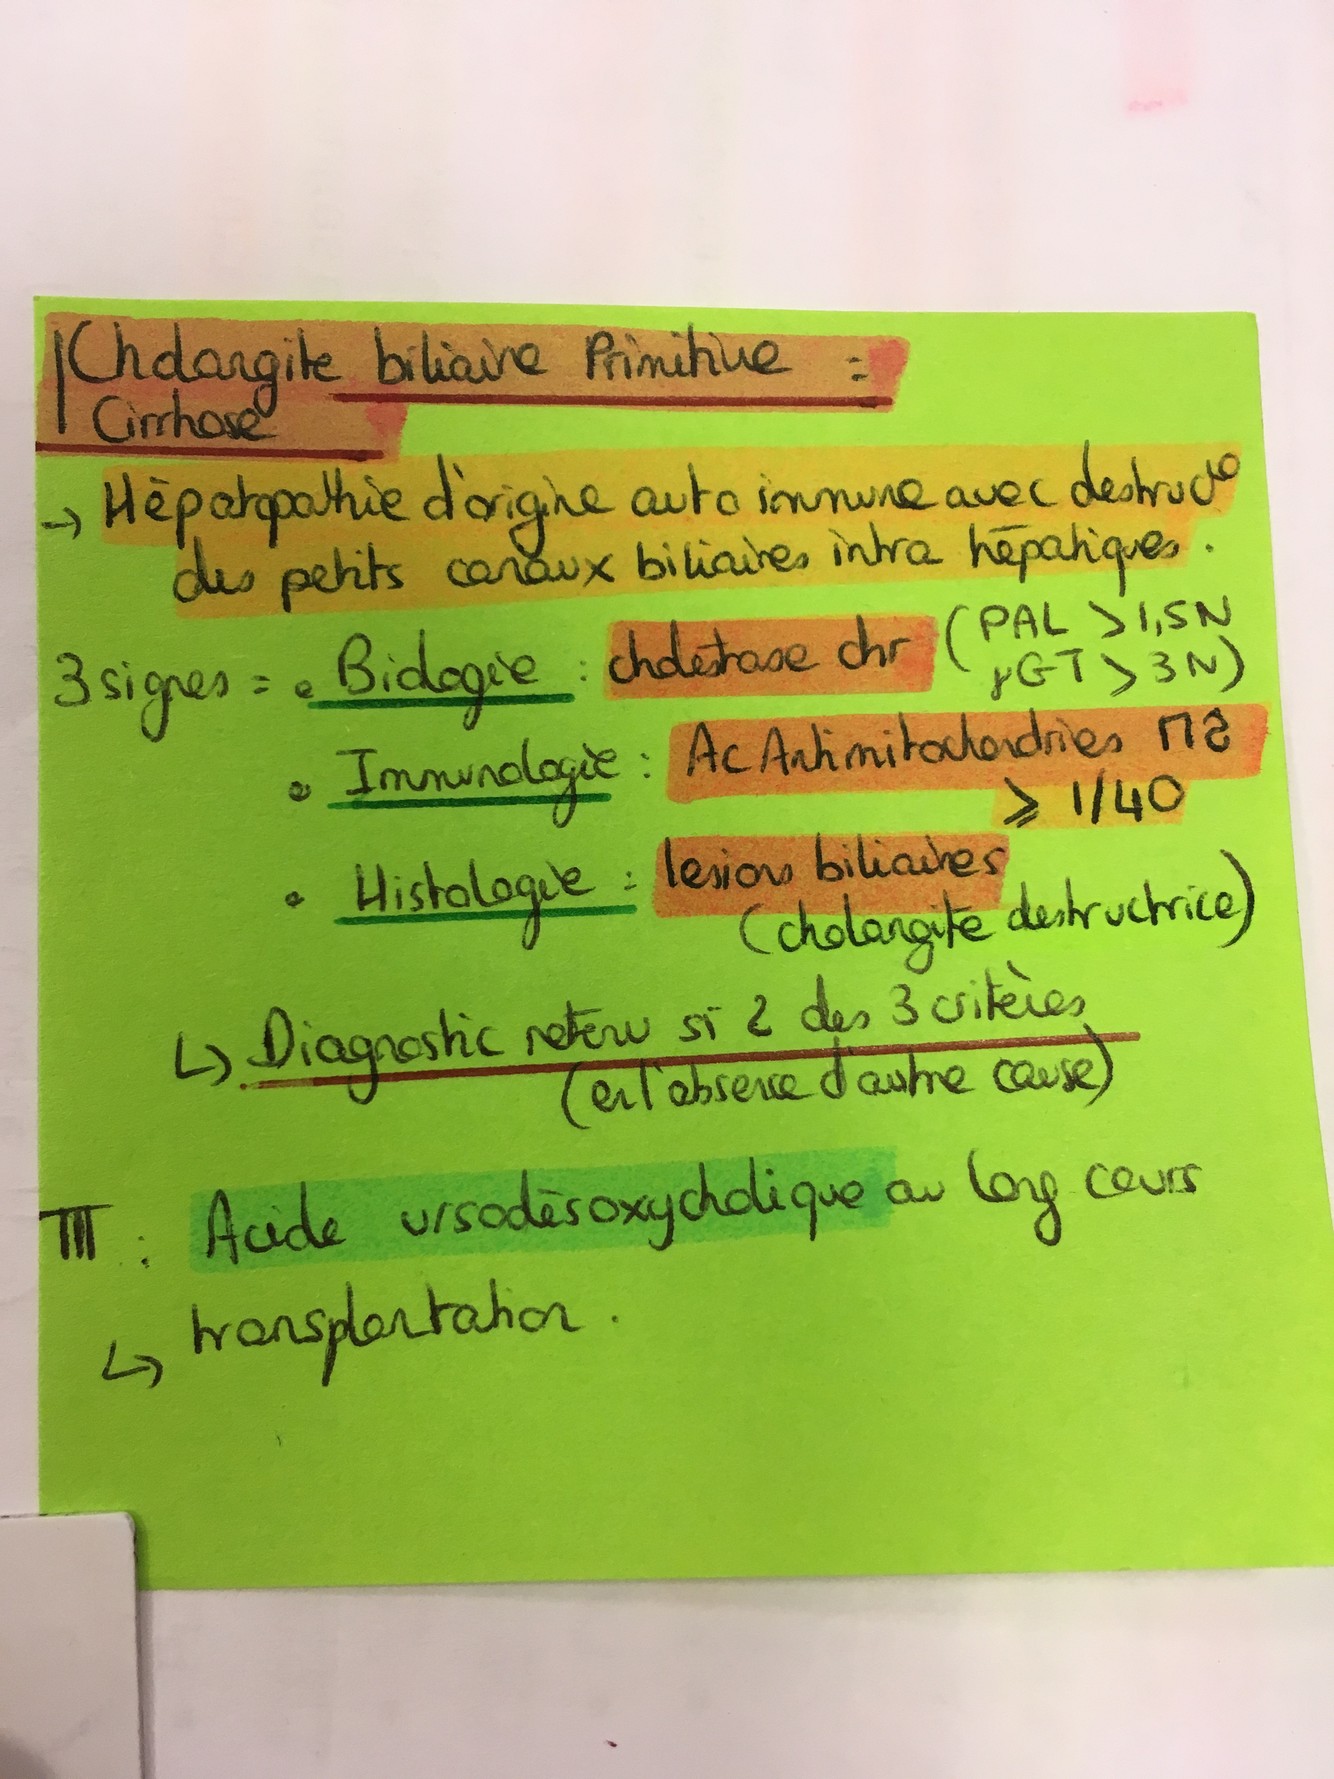 Cholangite biliaire Primitive =
Cirrhose
→ Hépatopathie d'origine auto immune avec destruct°
des petits canaux biliaires intra hépatiques.
3 signes = • Biologie : cholestase chr (PAL > 1,5N
γGT > 3N)
• Immunologie : Ac Antimitochondries M2
⩾ 1/40
• Histologie : lesions biliaires
(cholangite destructrice)
↳ Diagnostic retenu si 2 des 3 critères
(en l'absence d'autre cause)
TTT : Acide ursodésoxycholique au long cours
↳ transplantation.